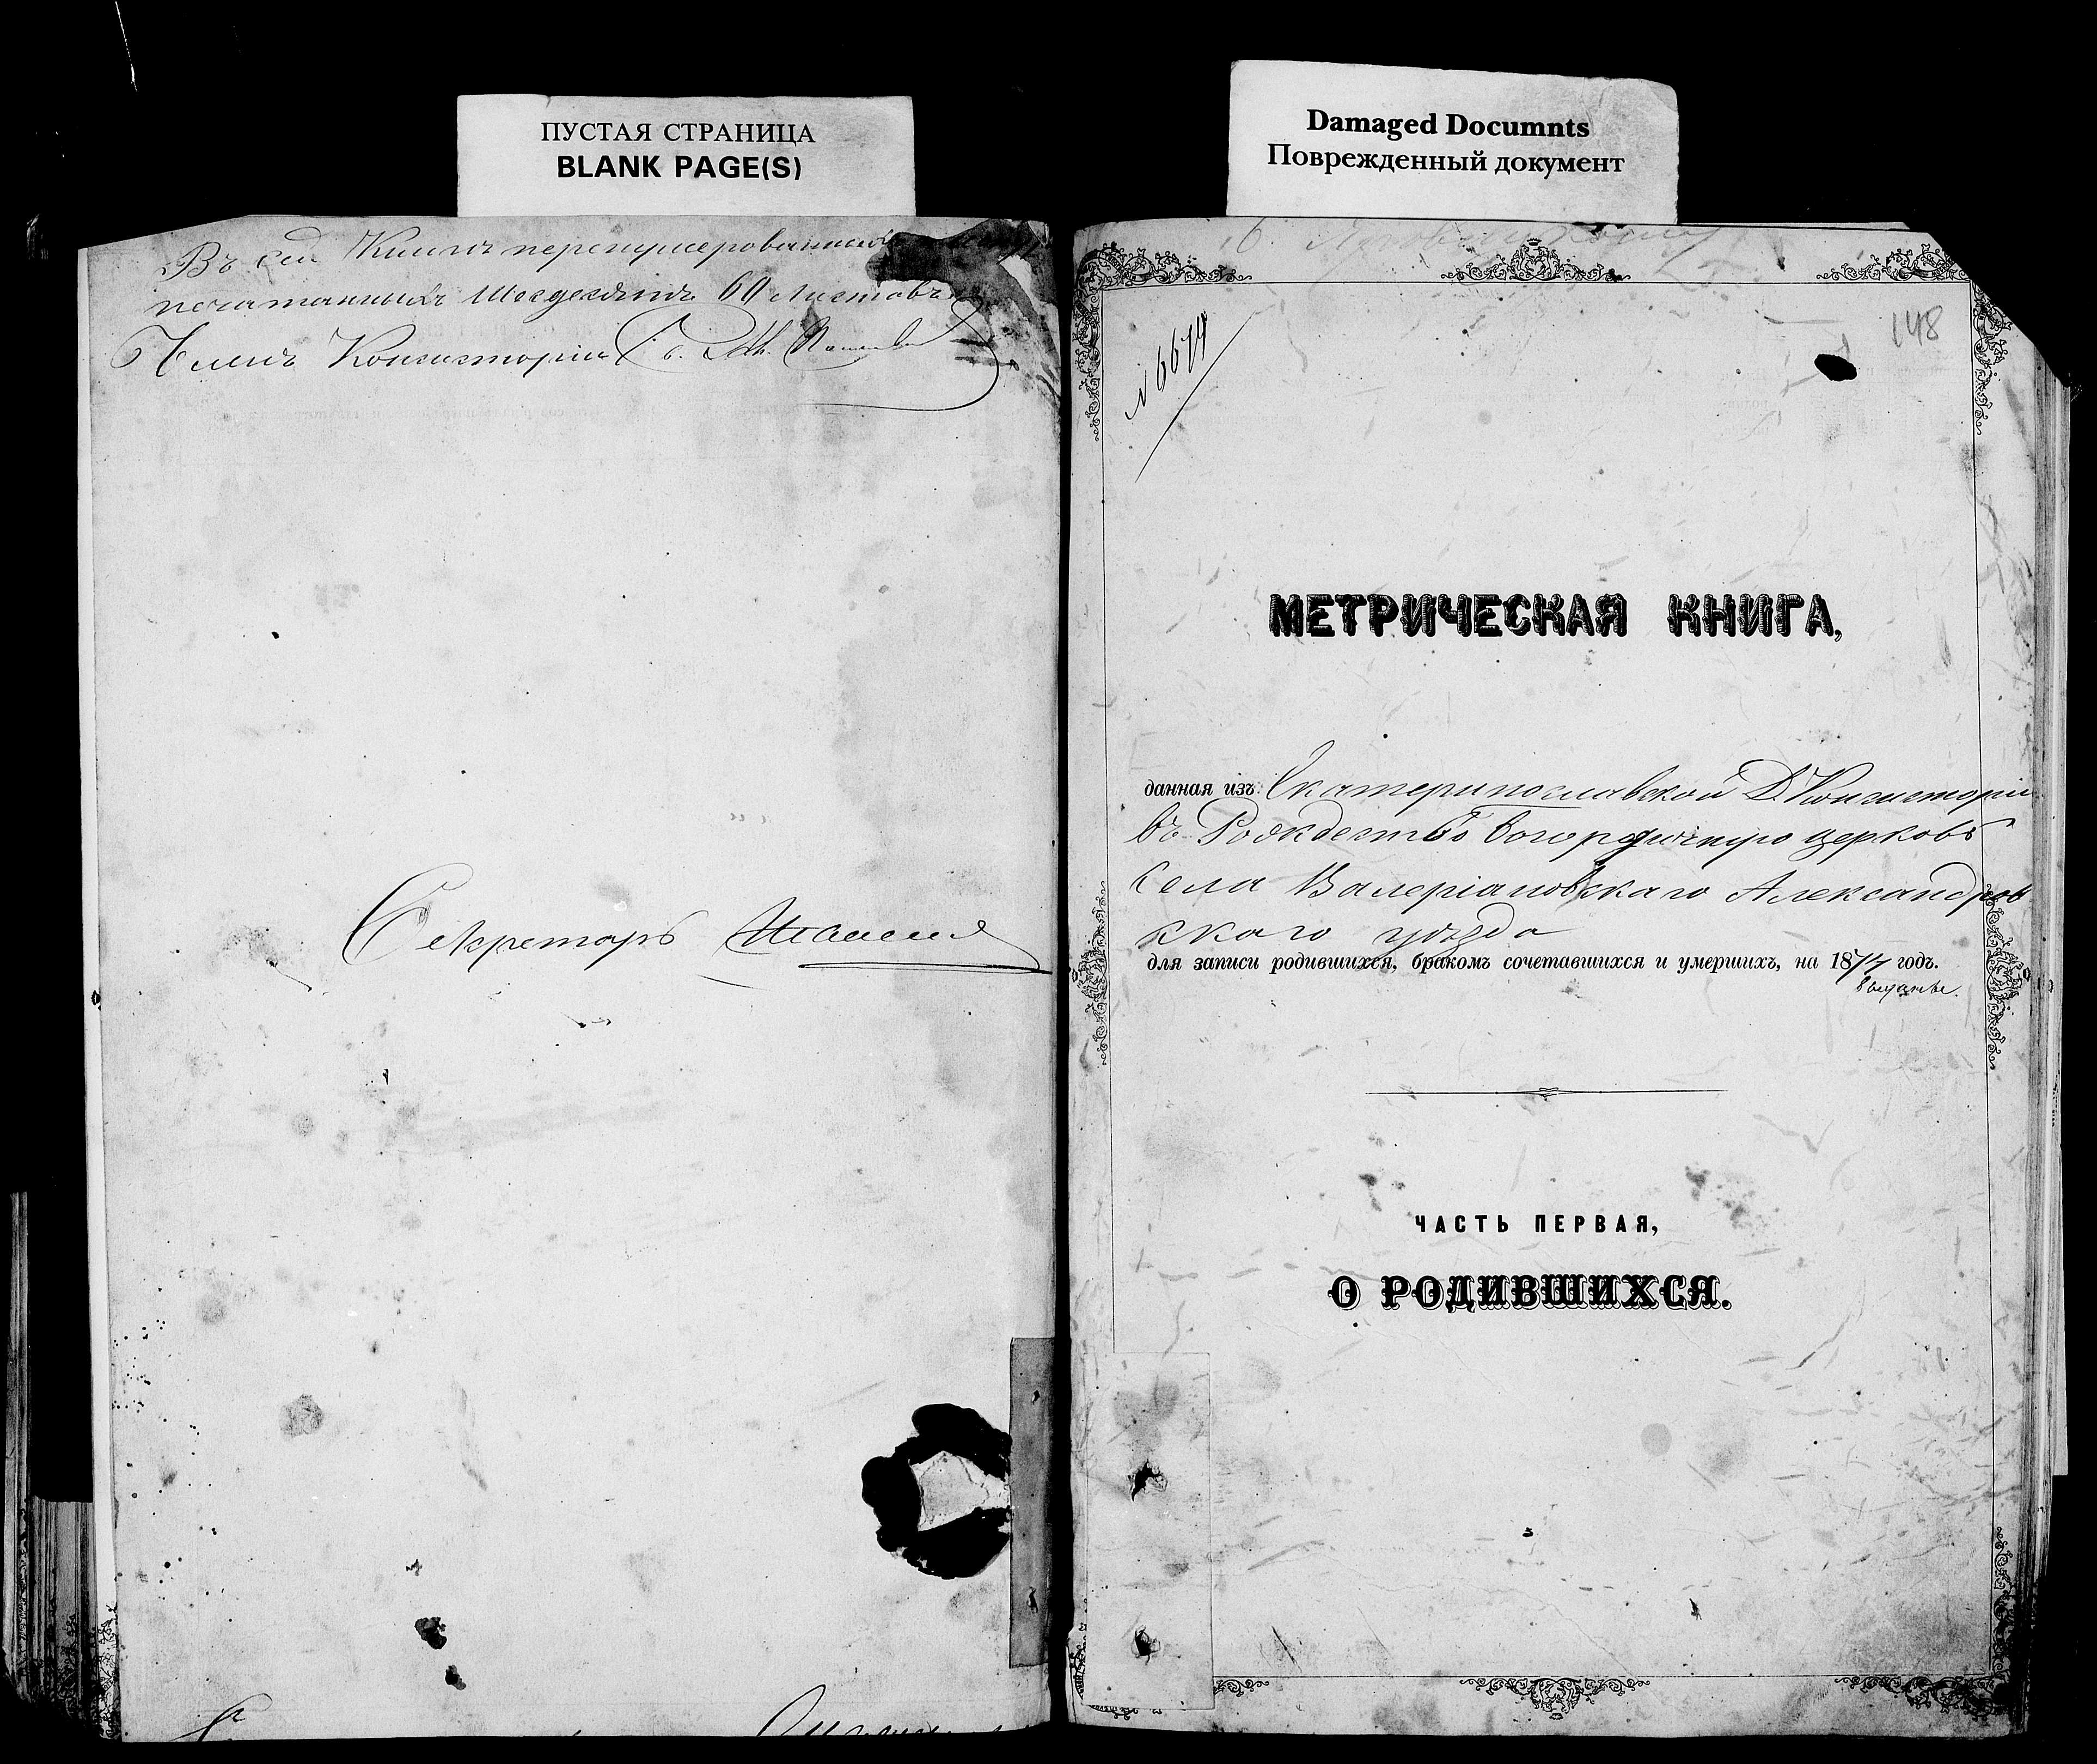 ПУСТАЯ СТРАНИЦА
BLANK PAGE(S)
Damaged Documnts
Поврежденный документ
Въ сей Книгѣ перенумерованныхъ
печатанныхъ шесдесятъ 60 Листовъ
Членъ Консисторіи
Секретарь
148
№ 6614
МЕТРИЧЕСКАЯ КНИГА,
данная изъ Екатеринославской Д. Консисторіи
въ Рождество Богородичную церковь
села Валеріановскаго Александров
скаго уѣзда
для записи родившихся, бракомъ сочетавшихся и умершихъ, на 1874 годъ.
ЧАСТЬ ПЕРВАЯ,
О РОДИВШИХСЯ.